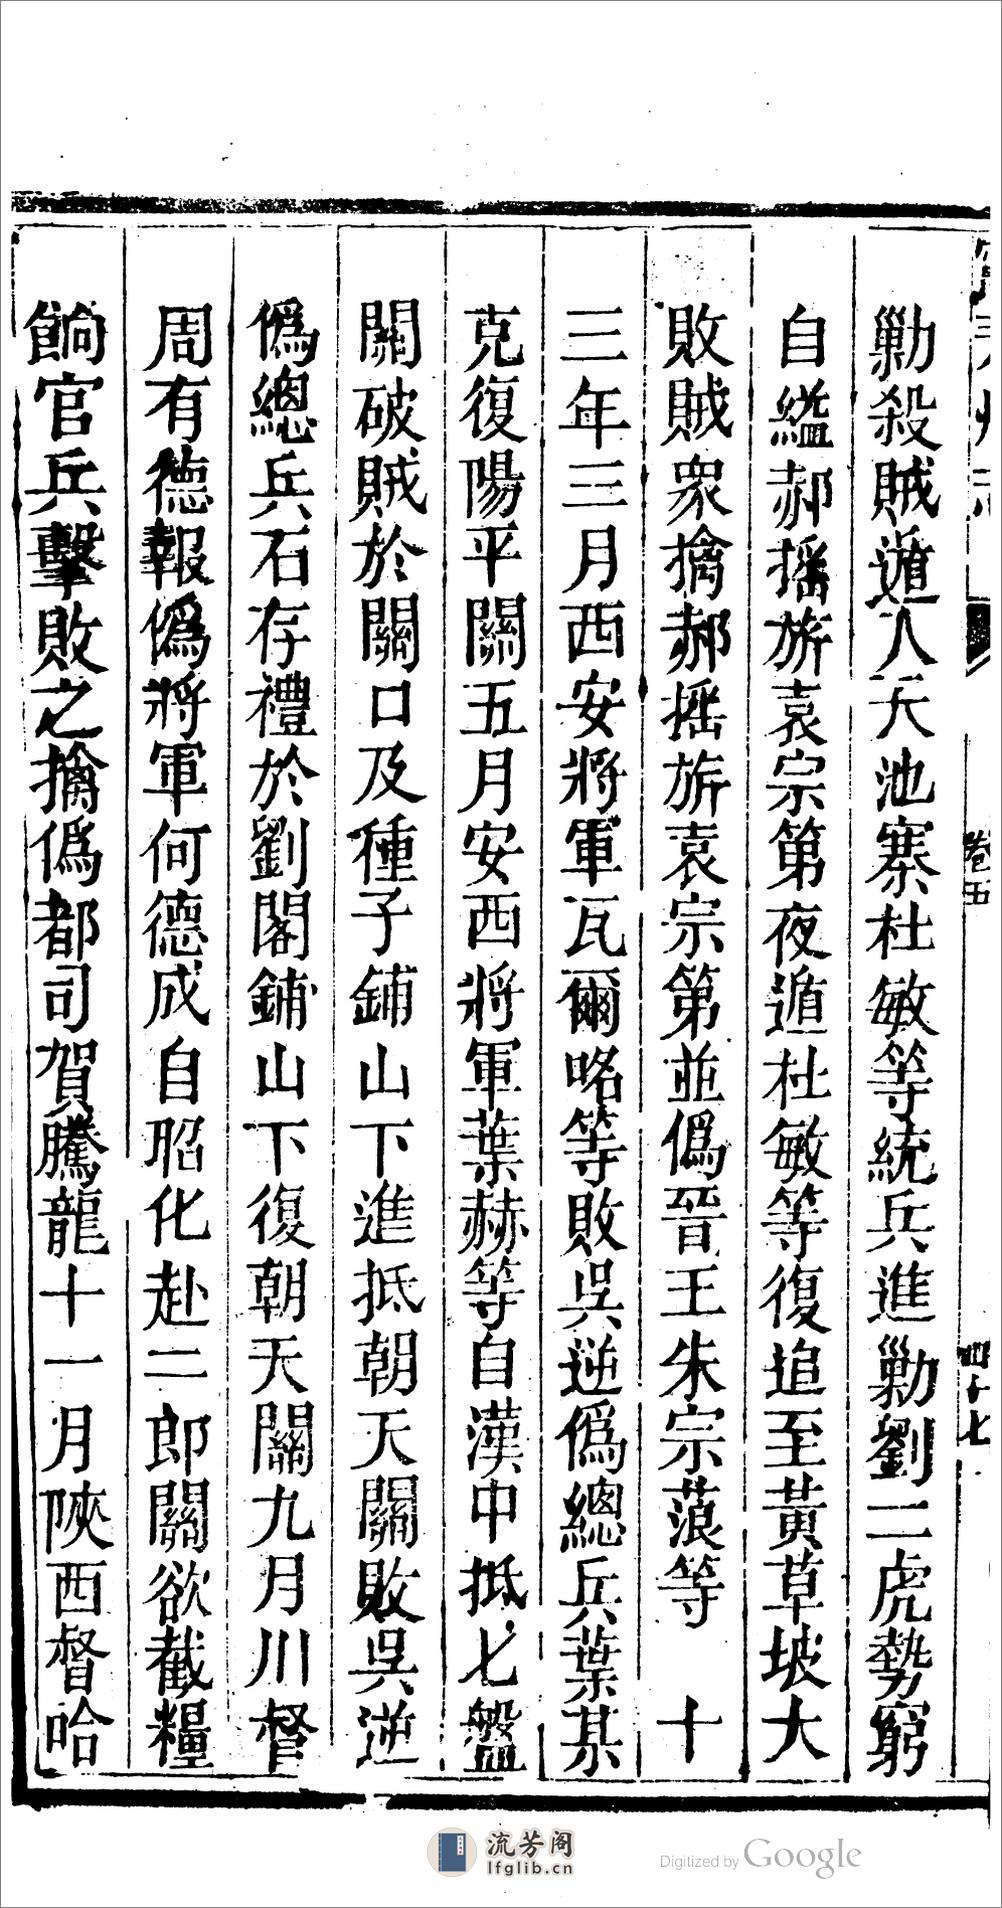 勦殺賊遁入天池寨杜敏等統兵進勦劉二虎勢窮
自縊郝搖旂袁宗第夜遁杜敏等復追至黃草坡大
敗賊衆擒郝搖旂袁宗第並僞晉王朱宗蒗等　十
三年三月西安將軍瓦爾咯等敗吳逆僞總兵葉某
克復陽平關五月安西將軍葉赫等自漢中抵七盤
關破賊於關口及種子鋪山下進抵朝天關敗吳逆
僞總兵石存禮於劉閣鋪山下復朝天關九月川督
周有德報僞將軍何德成自昭化赴二郎關欲截糧
餉官兵擊敗之擒僞都司賀騰龍十一月陝西督哈
卷五
四十七
流芳阁
lfglib.cn
Digitized by Google